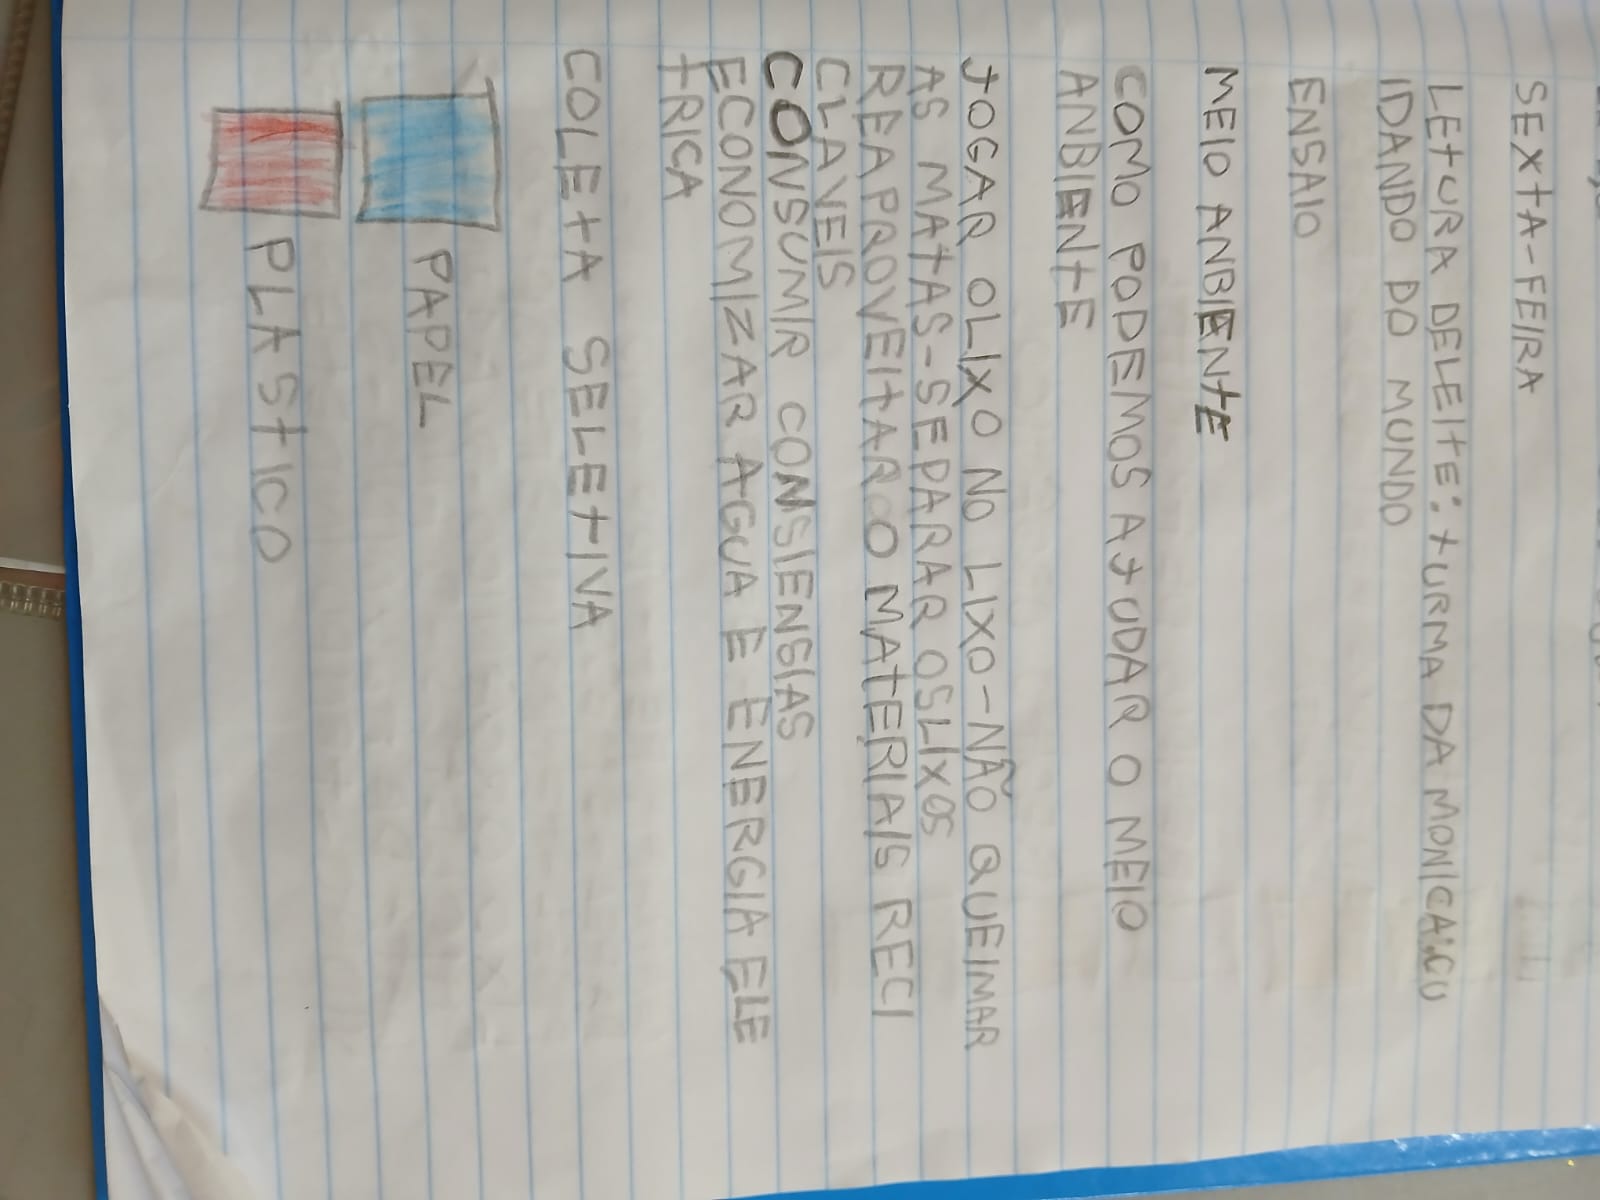 SEXTA-FEIRA
LETURA DELEITE: TURMA DA MONICA:CU
IDANDO DO MUNDO
ENSAIO
MEIO ANBIENTE
COMO PODEMOS AJUDAR O MEIO
ANBIENTE
JOGAR OLIXO NO LIXO-NÃO QUEIMAR
AS MATAS-SEPARAR OSLIXOS
REAPROVEITAR O MATERIAIS RECI
CLAVEIS
CONSUMIR CONSIENSIAS
ECONOMIZAR AGUA E ENERGIA ELE
TRICA
COLETA SELETIVA
PAPEL
PLASTICO